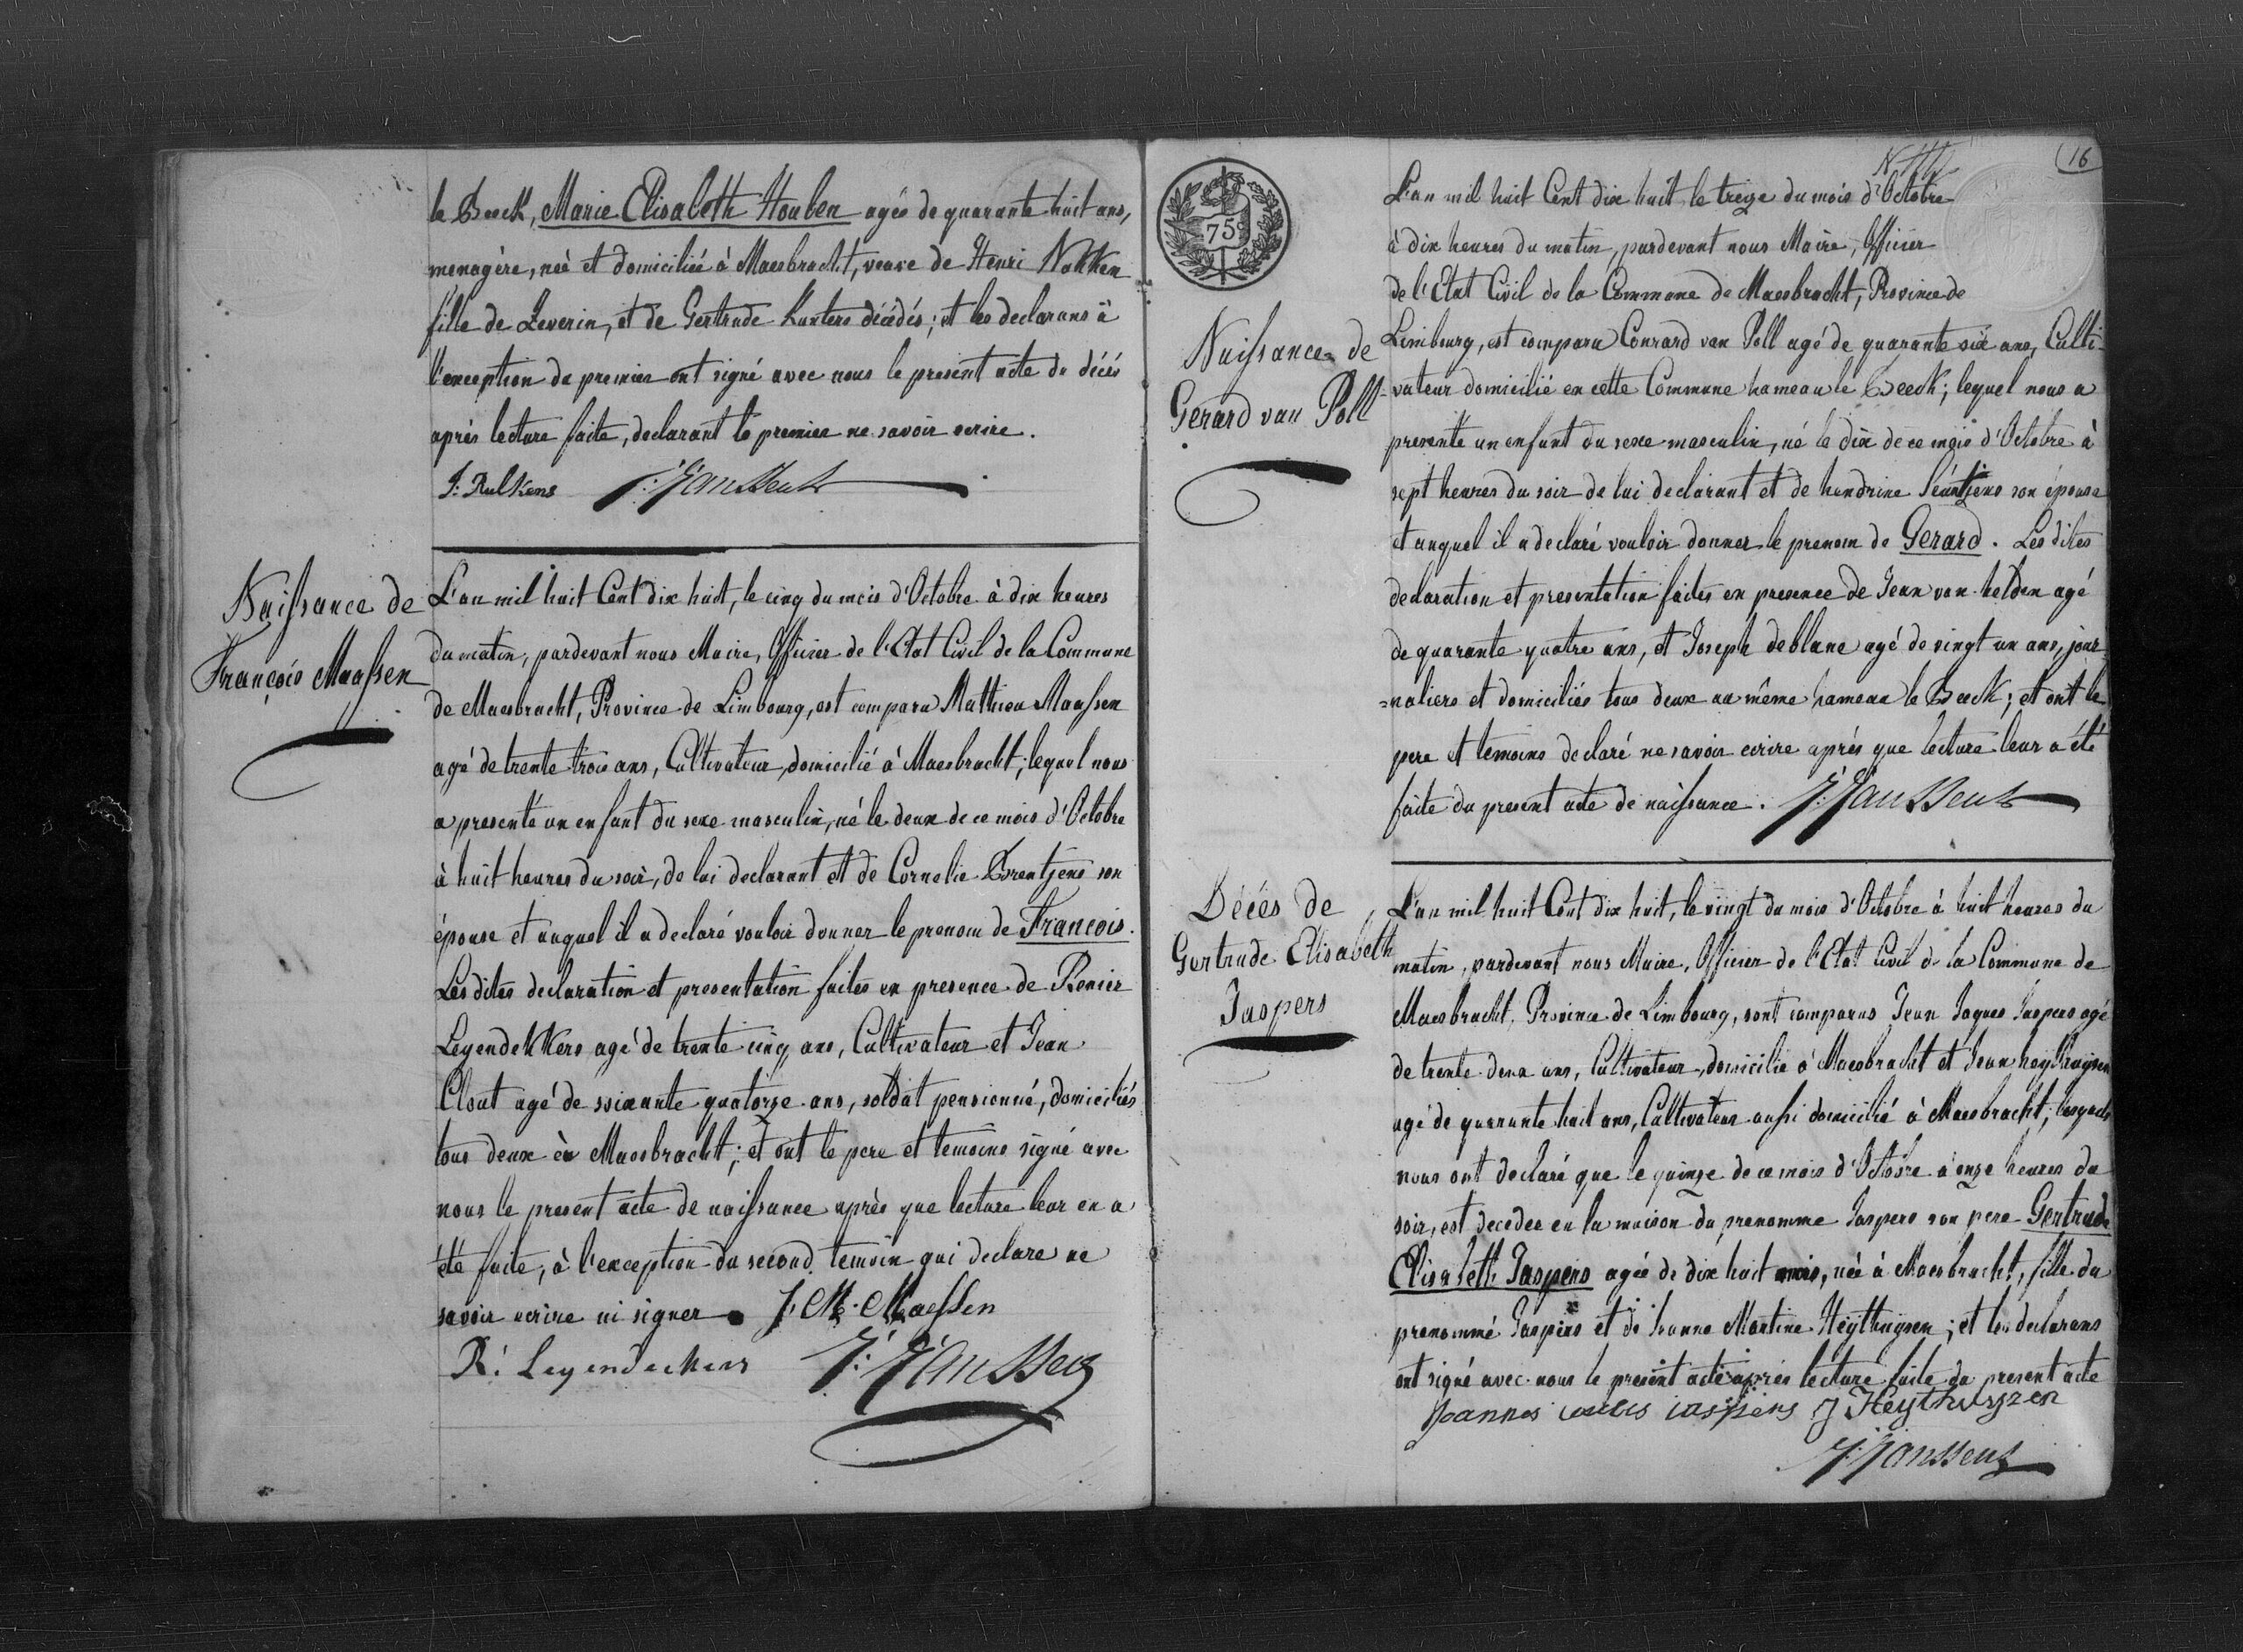 le Beek, Marie Elisabeth Houben agée de quarante huit ans,
menagère, neé et domiciliée à Maesbracht, veuve de Henri Nakken
fille de Zeverin, et de Gertrude Kurters décédés; et les declarans à
l'exception du premier ont signé avec nous le present acte de décés
après lecture faite, declarant le premier ne savoir ecrire.
J: Rulkens J: Janssens
Naissance de
François Maassen
L'an mil huit Cent dix huit, le cinq du mois d'Octobre à dix heures
du matin, pardevant nous Maire, Officier de l'Etat Civil de la Commune
de Maesbracht, Province de Limbourg, est comparu Mathieu Maassen
agé de trente trois ans, Cultivateur, domicilié à Maesbracht; lequel nous
a presenté un enfant du sexe masculin, né le deux de ce mois d'Octobre
à huit heures du soir, de lui declarant et de Cornelie Brentjens son
épouse et auquel il a declaré vouloir donner le prenom de François.
Les dites declaration et presentation faites en presence de Renier
Legendekkers agé de trente cinq ans, Cultivateur et Jean
Clout agé de soixante quatorze ans, soldat pensionné, domiciliés
tous deux à Maesbracht; et ont le pere et temoins signé avec
nous le present acte de naissance après que lecture leur en a
été faite, à l'exception du second temoin qui declare ne
savoir ecrire ni signer. J. M. Maessen
R: Legendeckers J: Janssens
16
75
Naissance de
Gerard van Poll
L'an mil huit Cent dix huit le treize du mois d'Octobre
à dix heures du matin, pardevant nous Maire, Officier
de l'Etat Civil de la Commune de Maesbracht, Province de
Limbourg, est comparu Conrard van Poll agé de quarante six ans, Culti-
vateur domicilié en cette Commune hameau le Beek; lequel nous a
presenté un enfant du sexe masculin, né le dix de ce mois d'Octobre à
sept heures du soir de lui declarant et de hendrine son épouse
et auquel il a declaré vouloir donner le prenom de Gerard. Les dites
declaration et presentation faites en presence de Jean van helden agé
de quarante quatre ans, et Joseph deblanc agé de vingt un ans, jour
=naliers et domiciliés tous deux au même hameau le Beek; et ont le
pere et temoins declaré ne savoir ecrire après que lecture leur a été
faite du present acte de naissance. J: Janssens
Décés de
Gertrude Elisabeth
Jaspers
L'an mil huit Cent dix huit, le vingt du mois d'Octobre à huit heures du
matin, pardevant nous Maire, Officier de l'Etat Civil de la Commune de
Maesbracht, Province de Limbourg, sont comparus Jean Jaques Jaspers agé
de trente deux ans, Cultivateur, domicilié à Maesbracht et Jean heythuysen
agé de quarante huit ans, Cultivateur aussi domicilié à Maesbracht, lesquels
nous ont declaré que le quinze de ce mois d'Octobre à onze heures du
soir, est decedée en la maison du prenomme Jaspers son pere Gertrude
Elisabeth Jaspers agée de dix huit mois, née à Maesbracht, fille du
prenommé Jaspers et de Jeanne Martine Heythuysen; et les declarans
ont signé avec nous le present acte après lecture faite du present acte
Joannes iaspers J Heythuyzen
J: Janssens